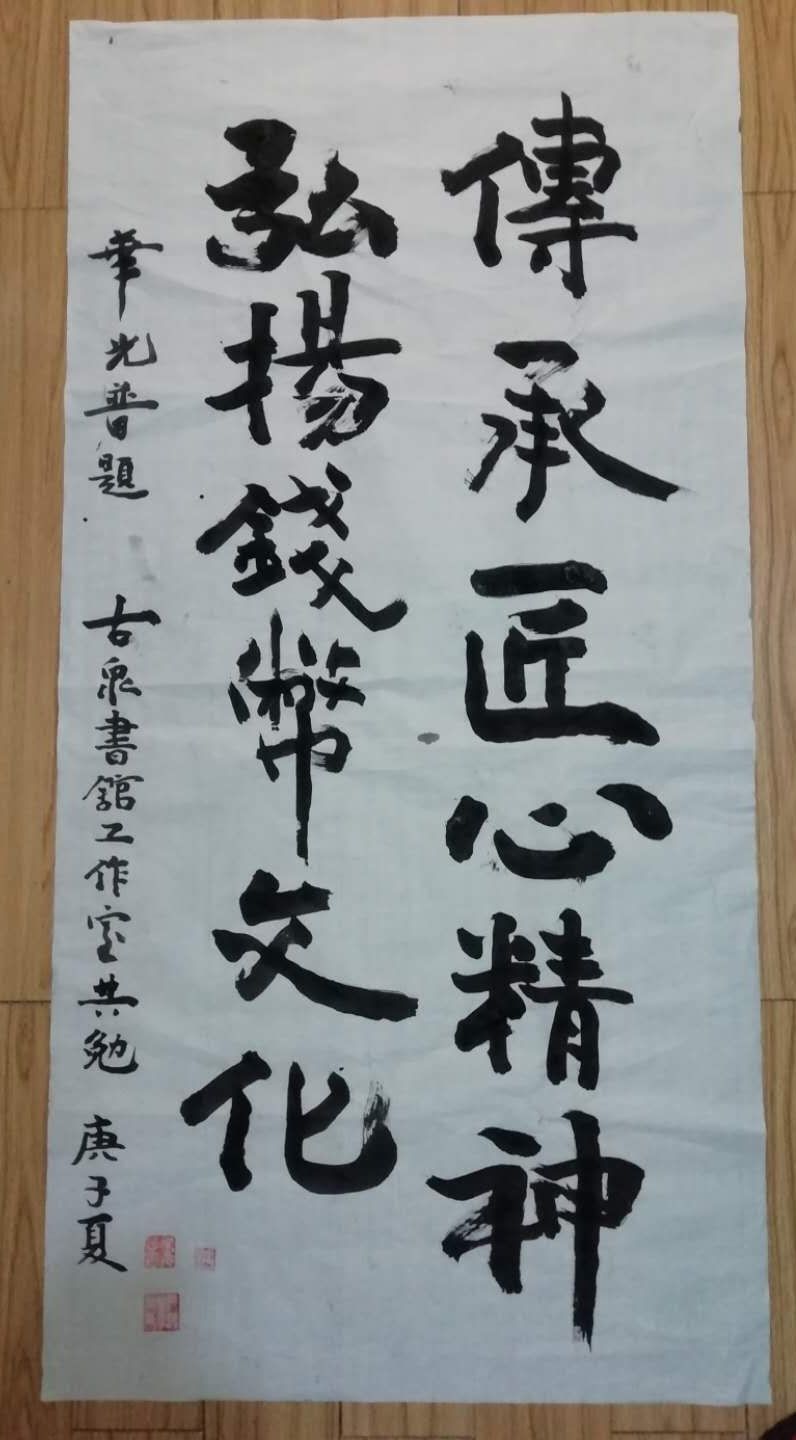 傳承匠心精神
弘揚錢幣文化
華光普題 古泉書館工作室共勉 庚子夏